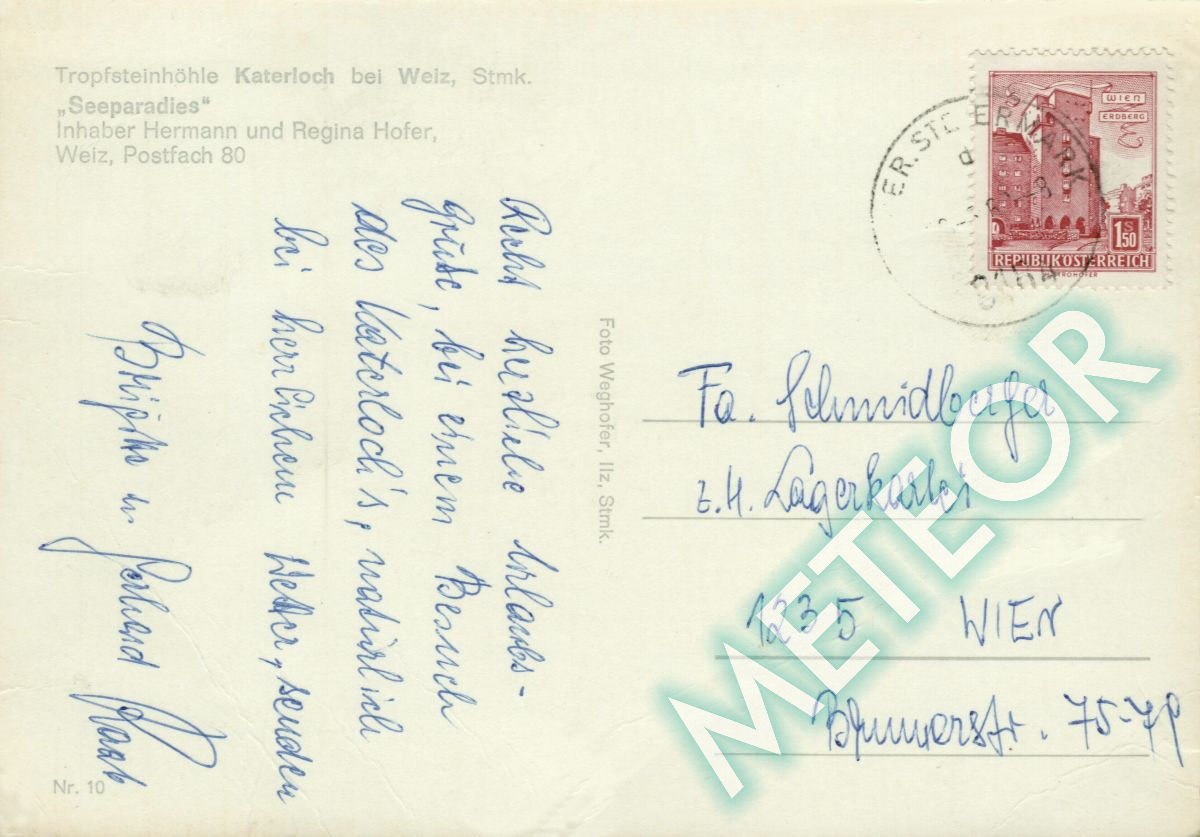 Tropfsteinhöhle Katerloch bei Weiz, Stmk.
„Seeparadies“
Inhaber Hermann und Regina Hofer,
Weiz, Postfach 80
Recht herzliche Urlaubs-
grüße, bei einem Besuch
des Katerloch's, natürlich
bei herrlichem Wetter, senden
Brigitte u. Gerhard
Nr. 10
Foto Weghofer, Ilz, Stmk.
WIEN
ERDBERG
1S50
REPUBLIK ÖSTERREICH
STEIERMARK
Fa. Schmidberger
z.H. Lagerkartei
1235 WIEN
Brunnerstr. 75-79
METEOR